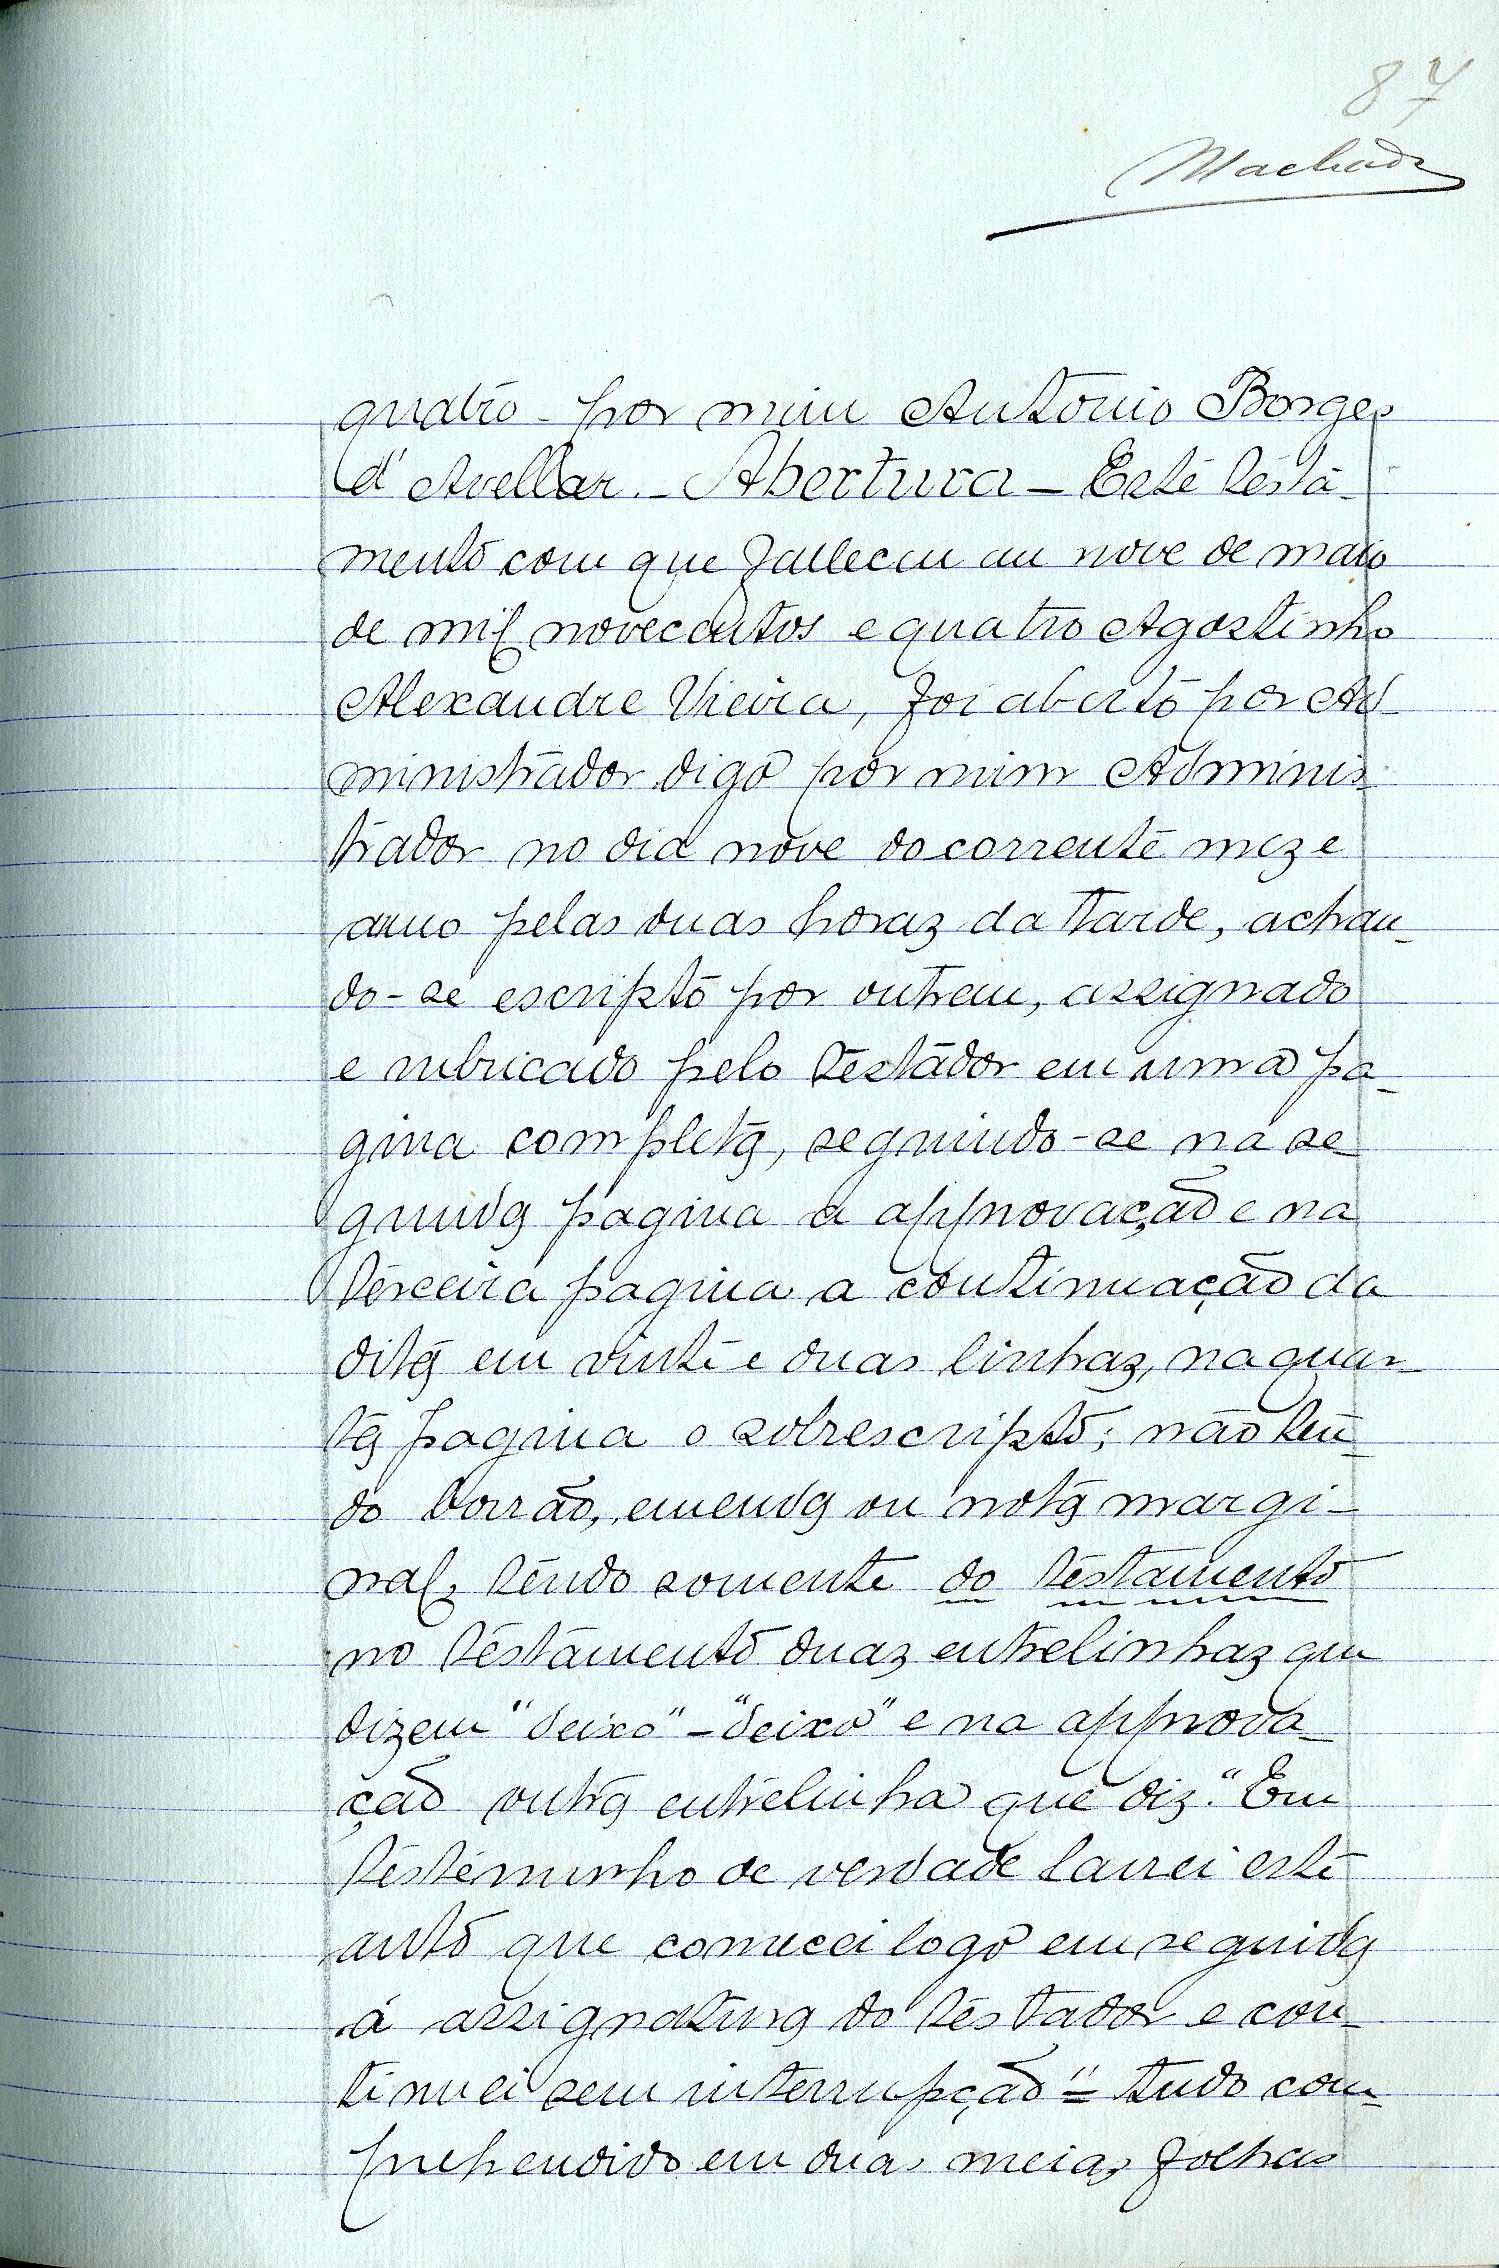 87
Machado
quatro - por mim Antonio Borges
d'Avellar. - Abertura - Este testa-
mento com que falleceu em nove de maio
de mil novecentos e quatro Agostinho
Alexandre Vieira, foi aberto por Ad-
ministrador digo por mim Adminis-
trador no dia nove do corrente mez e
anno pelas duas horas da tarde, achan-
do-se escripto por outrem, assignado
e rubricado pelo testador em uma pa-
gina completa, seguindo-se na se-
gunda pagina a approvação e na
terceira pagina a continuação da
dita em vinte e duas linhas, na quar-
ta pagina o sobrescripto; não ten-
do borrão, emenda ou nota margi-
nal, tendo somente do testamento
no testamento duas entrelinhas que
dizem "deixo" - "deixo" e na approva-
ção outra entrelinha que diz. "Em
testemunho de verdade lavrei este
auto que comecei logo em seguida
á assignatura do testador e con-
tinuei sem interrupção" = tudo com-
prehendido em duas meias folhas